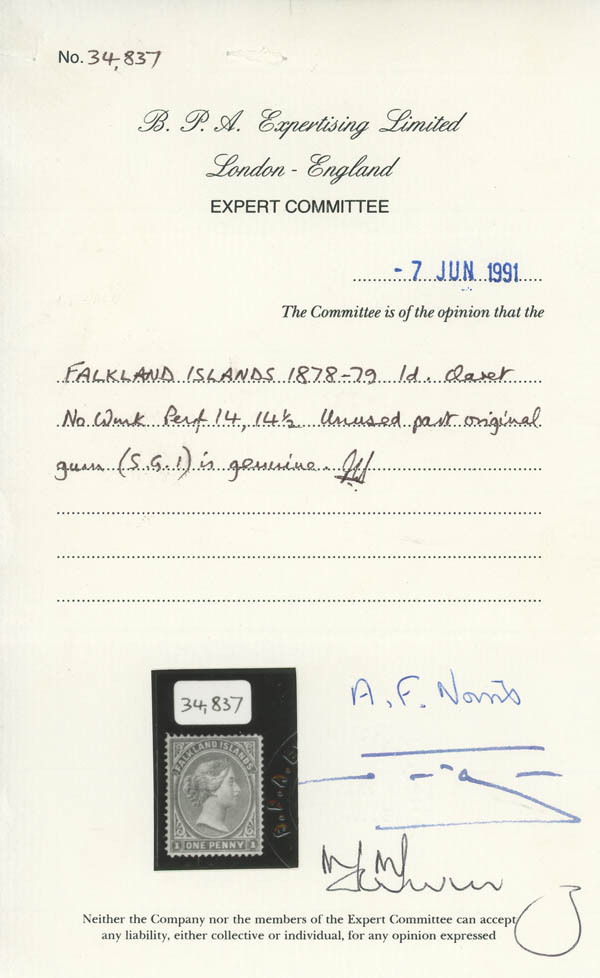 No. 34,837
B. P. A. Expertising Limited
London - England
EXPERT COMMITTEE
- 7 JUN 1991
The Committee is of the opinion that the
FALKLAND ISLANDS 1878-79 1d. Claret
No Wmk Perf 14, 14½ Unused part original
gum (S.G.1) is genuine.
34,837
FALKLAND ISLANDS
1 ONE PENNY 1
B.P.A.
A. F. Norris
Neither the Company nor the members of the Expert Committee can accept
any liability, either collective or individual, for any opinion expressed